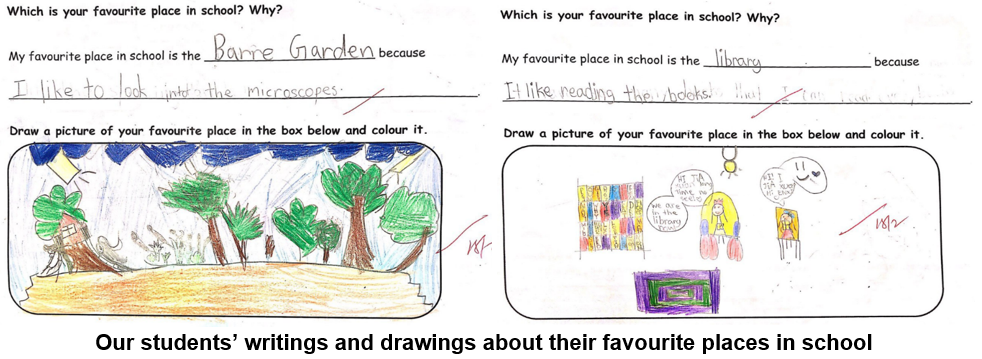 Which is your favourite place in school? Why?
My favourite place in school is the Barre Garden because
I like to look into the microscopes.
Draw a picture of your favourite place in the box below and colour it.
Which is your favourite place in school? Why?
My favourite place in school is the library because
It like reading the books. that I can
Draw a picture of your favourite place in the box below and colour it.
HI JIA
long
time no
we are
in the
library
HI! I
Our students' writings and drawings about their favourite places in school